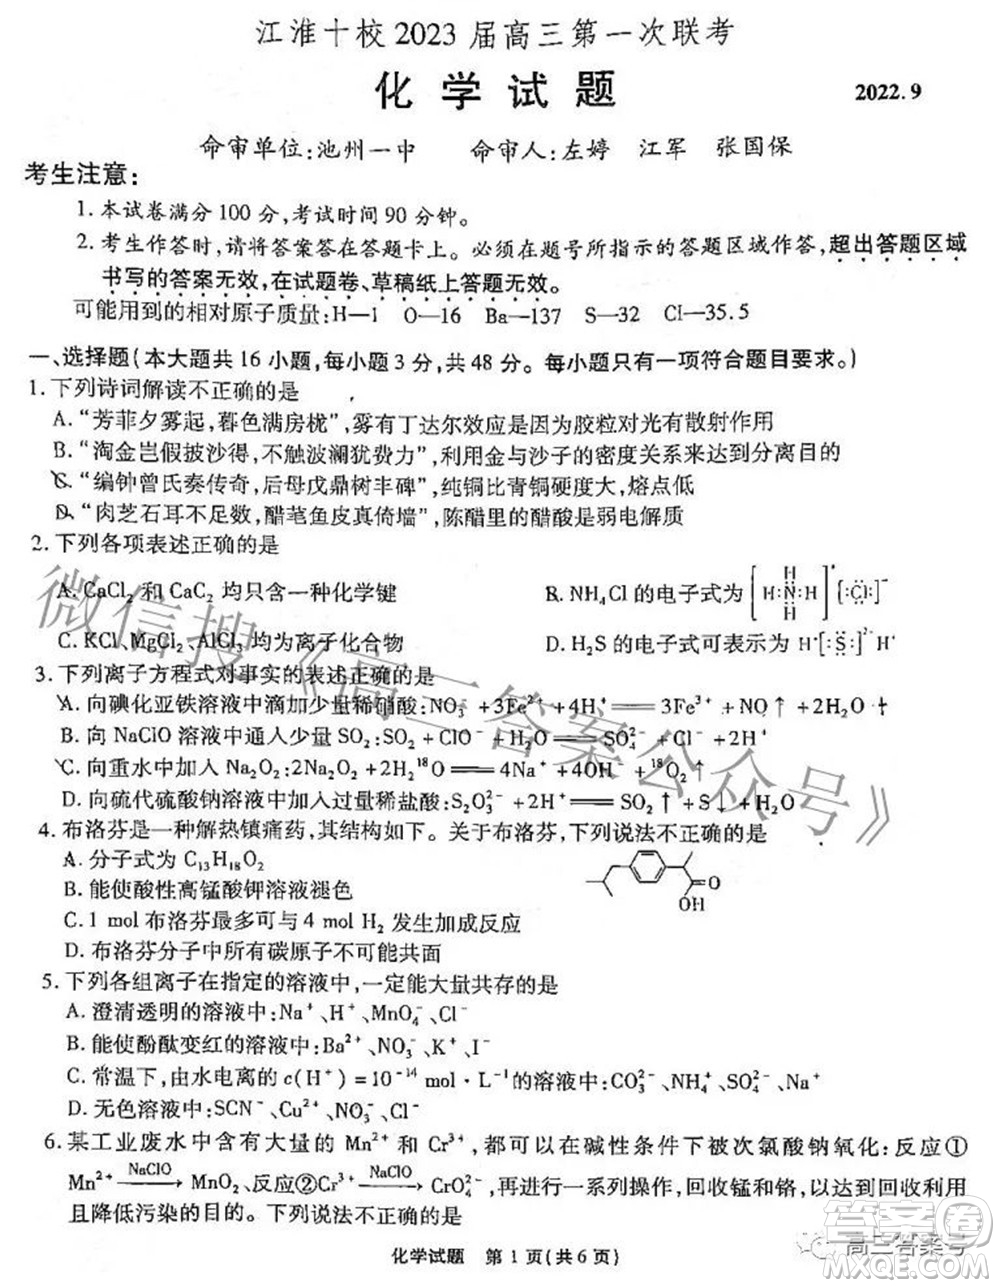 江淮十校2023届高三第一次联考
化学试题 2022.9
命审单位:池州一中 命审人:左婷 江军 张国保
考生注意:
1.本试卷满分100分,考试时间90分钟。
2.考生作答时,请将答案答在答题卡上。必须在题号所指示的答题区域作答,超出答题区域
书写的答案无效,在试题卷、草稿纸上答题无效。
可能用到的相对原子质量:H—1 O—16 Ba—137 S—32 Cl—35.5
一、选择题(本大题共16小题,每小题3分,共48分。每小题只有一项符合题目要求。)
1.下列诗词解读不正确的是
A.“芳菲夕雾起,暮色满房栊”,雾有丁达尔效应是因为胶粒对光有散射作用
B.“淘金岂假披沙得,不触波澜犹费功”,利用金与沙子的密度关系采用物理方法分离
C.“编钟曾氏奏传奇,后母戊鼎树丰碑”,纯铜比青铜硬度大,熔点低
D.“肉芝石耳不足数,醋芼鱼皮真倚墙”,陈醋里的醋酸是弱电解质
2.下列各项表述正确的是
A.CaCl₂和CaC₂均只含一种化学键 B.NH₄Cl的电子式为[H:N:H]⁺[:Cl:]⁻
C.KCl、MgCl₂、AlCl₃均为离子化合物 D.H₂S的电子式可表示为H⁺[:S:]²⁻H⁺
3.下列离子方程式对事实的表述正确的是
A.向碘化亚铁溶液中滴加少量稀硝酸:NO₃⁻+3Fe²⁺+4H⁺══3Fe³⁺+NO↑+2H₂O
B.向NaClO溶液中通入少量SO₂:SO₂+ClO⁻+H₂O══SO₄²⁻+Cl⁻+2H⁺
C.向重水中加入Na₂O₂:2Na₂O₂+2H₂¹⁸O══4Na⁺+4OH⁻+¹⁸O₂↑
D.向硫代硫酸钠溶液中加入过量稀盐酸:S₂O₃²⁻+2H⁺══SO₂↑+S↓+H₂O
4.布洛芬是一种解热镇痛药,其结构如下。关于布洛芬,下列说法不正确的是
A.分子式为C₁₃H₁₈O₂
B.能使酸性高锰酸钾溶液褪色
C.1 mol布洛芬最多可与4 mol H₂发生加成反应
D.布洛芬分子中所有碳原子不可能共面
O
OH
5.下列各组离子在指定的溶液中,一定能大量共存的是
A.澄清透明的溶液中:Na⁺、H⁺、MnO₄⁻、Cl⁻
B.能使酚酞变红的溶液中:Ba²⁺、NO₃⁻、K⁺、I⁻
C.常温下,由水电离的c(H⁺)=10⁻¹⁴ mol·L⁻¹的溶液中:CO₃²⁻、NH₄⁺、SO₄²⁻、Na⁺
D.无色溶液中:SCN⁻、Cu²⁺、NO₃⁻、K⁺
6.某工业废水中含有大量的Mn²⁺和Cr³⁺,都可以在碱性条件下被次氯酸钠氧化:反应①
Mn²⁺ —NaClO→ MnO₂、反应②Cr³⁺ —NaClO→ CrO₄²⁻,再进行一系列操作,回收锰和铬,以达到回收利用
且降低污染的目的。下列说法不正确的是
化学试题 第1页(共6页)
微信搜《高三答案公众号》
高三答案号